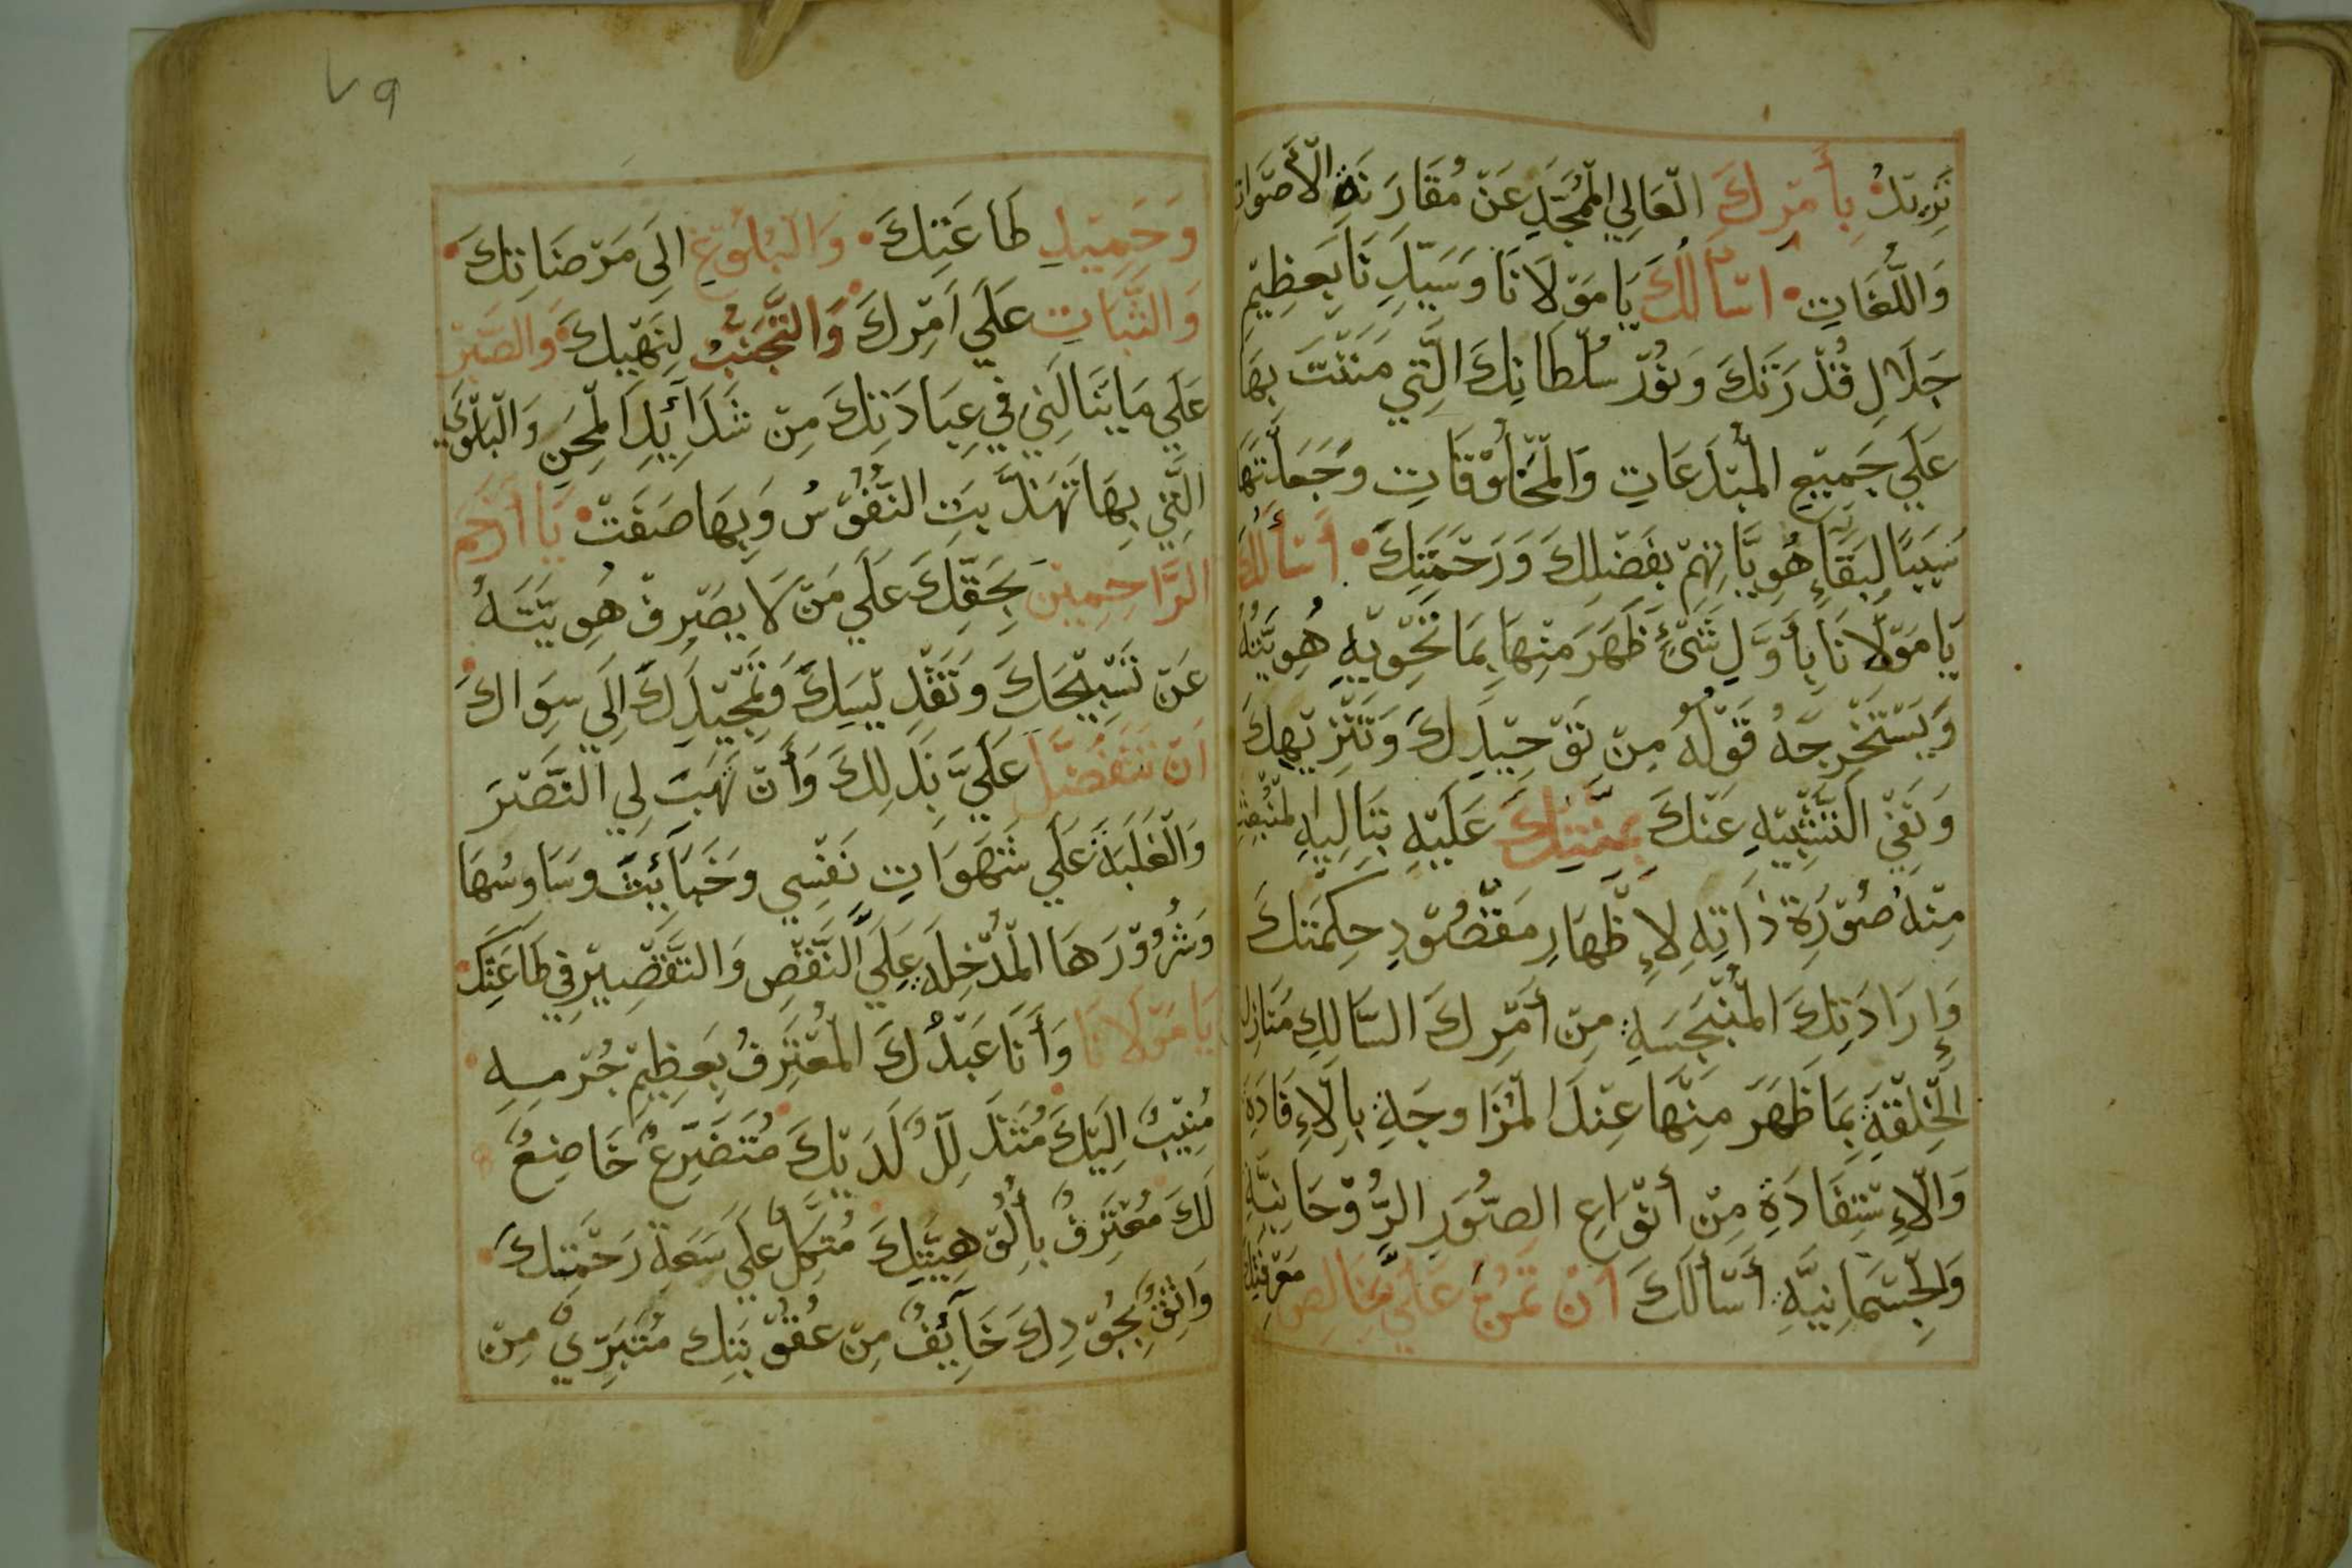 تَرِبَتْكَ بِأَمْرِكَ الْعَالِي الْمُمَجَّدِ عَنْ مُقَارَنَةِ الْأَصْوَاتِ
وَاللُّغَاتِ أَسْأَلُكَ يَا مَوْلَانَا وَسَيِّدِنَا بِعَظِيْمِ
جَلَالِ قُدْرَتِكَ وَنُوْرِ سُلْطَانِكَ الَّتِي مَنَنْتَ بِهَا
عَلَي جَمِيْعِ الْمُبْدَعَاتِ وَالْمَخْلُوْقَاتِ وَجَعَلْتَهَا
سَبَبًا لِبَقَاءِ هُوِيَّاتِهِمْ بِفَضْلِكَ وَرَحْمَتِكَ أَسْأَلُكَ
يَا مَوْلَانَا بِأَوَّلِ شَيْءٍ ظَهَرَ مِنْهَا بِمَا تَحْوِيْهِ هُوِيَّتُهُ
وَيَسْتَخْرِجَهُ قَوْلُهُ مِنْ تَوْحِيْدِكَ وَتَنْزِيْهِكَ
وَنَفْيِ التَّشْبِيْهِ عَنْكَ بِمَنِّكَ عَلَيْهِ بِتَالِيْهِ الْمُنْبَعِثِ
مِنْهُ صُوْرَةُ ذَاتِهِ لِإِظْهَارِ مَقْصُوْدِ حِكْمَتِكَ
وَإِرَادَتِكَ الْمُنْبَجِسَةِ مِنْ أَمْرِكَ السَّالِكِ مَنَازِلَ
الْخِلْقَةِ بِمَا ظَهَرَ مِنْهَا عِنْدَ الْمُزَاوَجَةِ بِالْإِفَادَةِ
وَالْإِسْتِفَادَةِ مِنْ أَنْوَاعِ الصُّوَرِ الرُّوْحَانِيَّةِ
وَالْجِسْمَانِيَّةِ أَسْأَلُكَ أَنْ تَمُنَّ عَلَيَّ بِخَالِصِ مَعْرِفَتِكَ
٧٩
وَحَمِيْدِ طَاعَتِكَ وَالْبُلُوْغِ إِلَي مَرْضَاتِكَ
وَالثَّبَاتِ عَلَي أَمْرِكَ وَالتَّجَنُّبِ لِنَهْيِكَ وَالصَّبْرِ
عَلَي مَا يَنَالُنِي فِي عِبَادَتِكَ مِنْ شَدَائِدِ الْمِحَنِ وَالْبَلْوَي
الَّتِي بِهَا تَهَذَّبَتِ النُّفُوْسُ وَبِهَا صَفَتْ يَا أَرْحَمَ
الرَّاحِمِيْنَ بِحَقِّكَ عَلَي مَنْ لَا يَصْرِفُ هُوِيَّتَهُ
عَنْ تَسْبِيْحِكَ وَتَقْدِيْسِكَ وَتَمْجِيْدِكَ إِلَي سِوَاكَ
أَنْ تَتَفَضَّلَ عَلَيَّ بِذَلِكَ وَأَنْ تَهَبَ لِي النَّصْرَ
وَالْغَلَبَةَ عَلَي شَهَوَاتِ نَفْسِي وَخَبَائِثَ وَسَاوِسِهَا
وَشُرُوْرَهَا الْمُدْخِلَةِ عَلَيَّ النَّقْصِ وَالتَّقْصِيْرِ فِي طَاعَتِكَ
يَا مَوْلَانَا وَأَنَا عَبْدُكَ الْمُعْتَرِفُ بِعَظِيْمِ جُرْمِهِ
مُنِيْبٌ إِلَيْكَ مُتَذَلِّلٌ لَدَيْكَ مُتَضَرِّعٌ خَاضِعٌ
لَكَ مُعْتَرِفٌ بِأُلُوْهِيَّتِكَ مُتَّكِلٌ عَلَي سَعَةِ رَحْمَتِكَ
وَاثِقٌ بِجُوْدِكَ خَائِفٌ مِنْ عُقُوْبَتِكَ مُتَبَرِّيٌ مِنْ